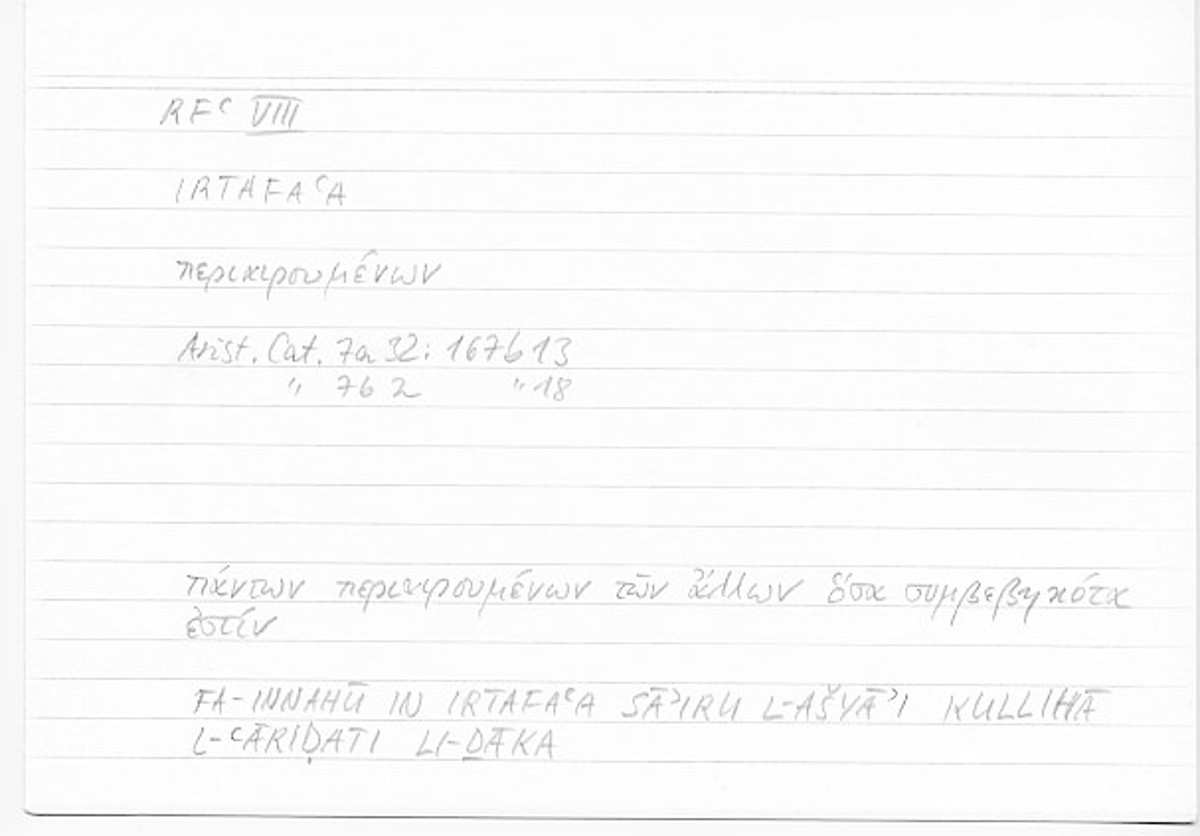 RFʿ VIII
IRTAFAʿA
περιαιρουμένων
Arist. Cat. 7a 32: 167b13
" 7b 2 " 18
πάντων περιαιρουμένων τῶν ἄλλων ὅσα συμβεβηκότα
ἐστίν
FA-INNAHŪ IN IRTAFAʿA SĀʾIRU L-AŠYĀʾI KULLIHĀ
L-ʿĀRIḌATI LI-ḎĀKA